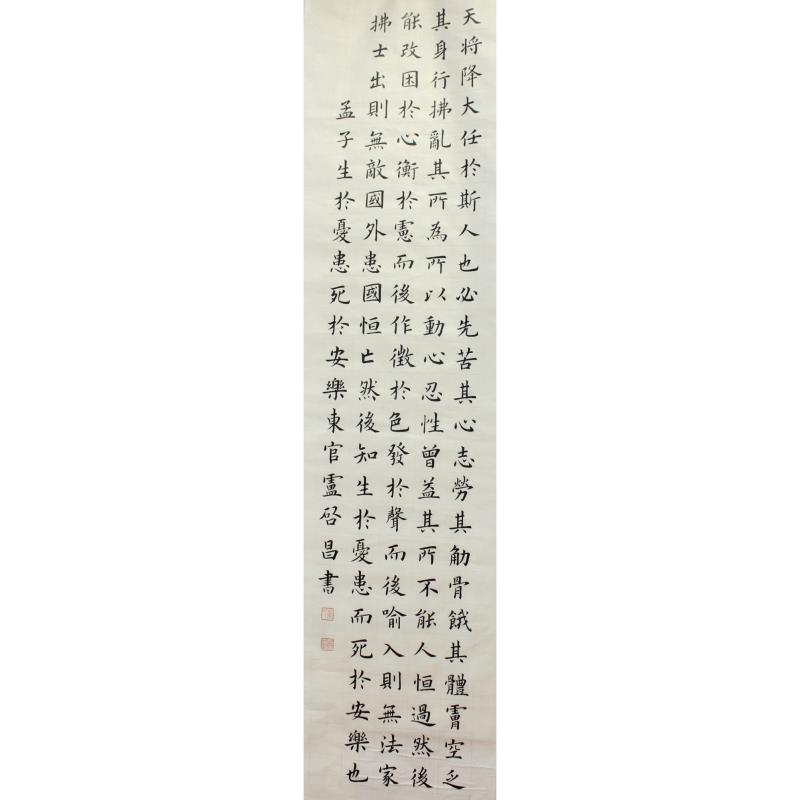 天将降大任於斯人也必先苦其心志勞其觔骨餓其體膚空乏
其身行拂亂其所為所以動心忍性曾益其所不能人恒過然後
能改困於心衡於慮而後作徵於色發於聲而後喻入則無法家
拂士出則無敵國外患國恒亡然後知生於憂患而死於安樂也
孟子生於憂患死於安樂東官盧启昌書